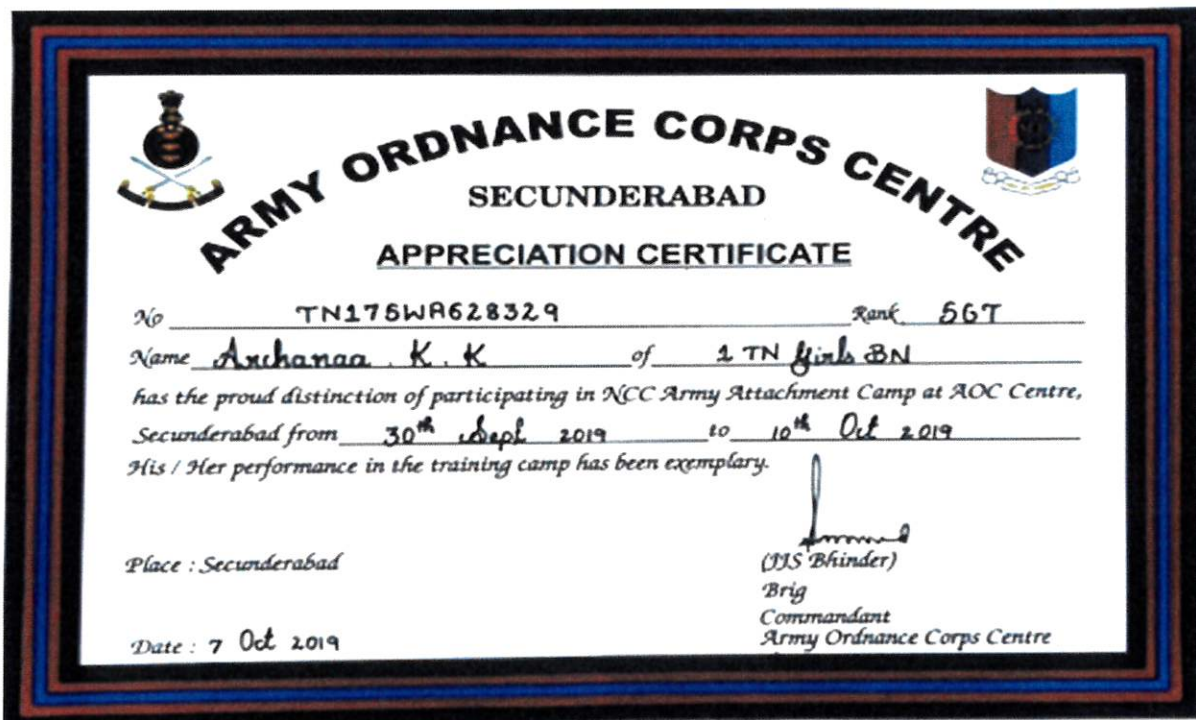 ARMY ORDNANCE CORPS CENTRE
SECUNDERABAD
APPRECIATION CERTIFICATE
No TN17SWA628329 Rank SGT
Name Archanaa . K . K of 1 TN Girls BN
has the proud distinction of participating in NCC Army Attachment Camp at AOC Centre,
Secunderabad from 30th Sept 2019 to 10th Oct 2019
His / Her performance in the training camp has been exemplary.
(JJS Bhinder)
Place : Secunderabad
Brig
Commandant
Date : 7 Oct 2019
Army Ordnance Corps Centre